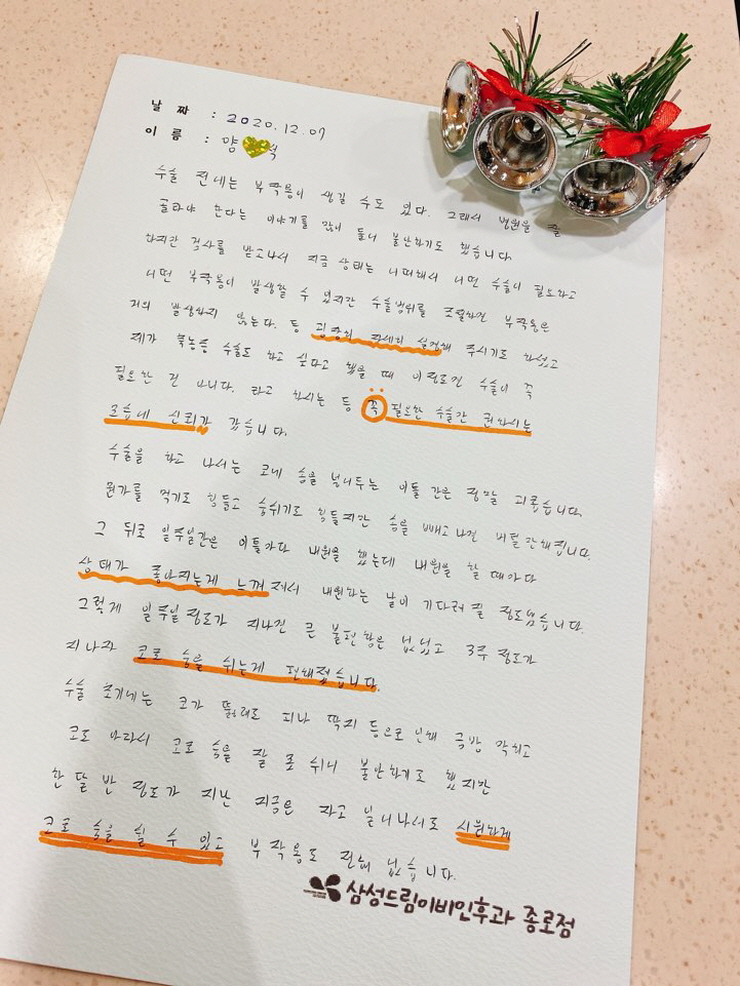 날 짜 : 2020.12.07
이 름 : 양 숙
수술 전에는 부작용이 생길 수도 있다. 그래서 병원을 잘
골라야 한다는 이야기를 많이 들어 불안하기도 했습니다.
하지만 검사를 받고나서 지금 상태는 어떠해서 어떤 수술이 필요하고
어떤 부작용이 발생할 수 있지만 수술범위를 조절하면 부작용은
거의 발생하지 않는다. 등 굉장히 자세히 설명해 주시기도 하셨고
제가 축농증 수술도 하고 싶다고 했을 때 이정도면 수술이 꼭
필요한 건 아니다. 라고 하시는 등 꼭 필요한 수술만 권하시는
모습에 신뢰가 갔습니다.
수술을 하고 나서는 코에 솜을 넣어두는 이틀 간은 정말 괴롭습니다.
뭔가를 먹기도 힘들고 숨쉬기도 힘들지만 솜을 빼고나면 버틸만해집니다.
그 뒤로 일주일간은 이틀마다 내원을 했는데 내원을 할 때마다
상태가 좋아지는게 느껴져서 내원하는 날이 기다려질 정도였습니다.
그렇게 일주일 정도가 지나면 큰 불편함은 없었고 3주 정도가
지나자 코로 숨을 쉬는게 편해졌습니다.
수술 초기에는 코가 뚫려도 피나 딱지 등으로 인해 금방 막히고
코도 말라서 코로 숨을 잘 못 쉬니 불안하기도 했지만
한 달 반 정도가 지난 지금은 자고 일어나서도 시원하게
코로 숨을 쉴 수 있고 부작용도 전혀 없습니다.
삼성드림이비인후과 종로점